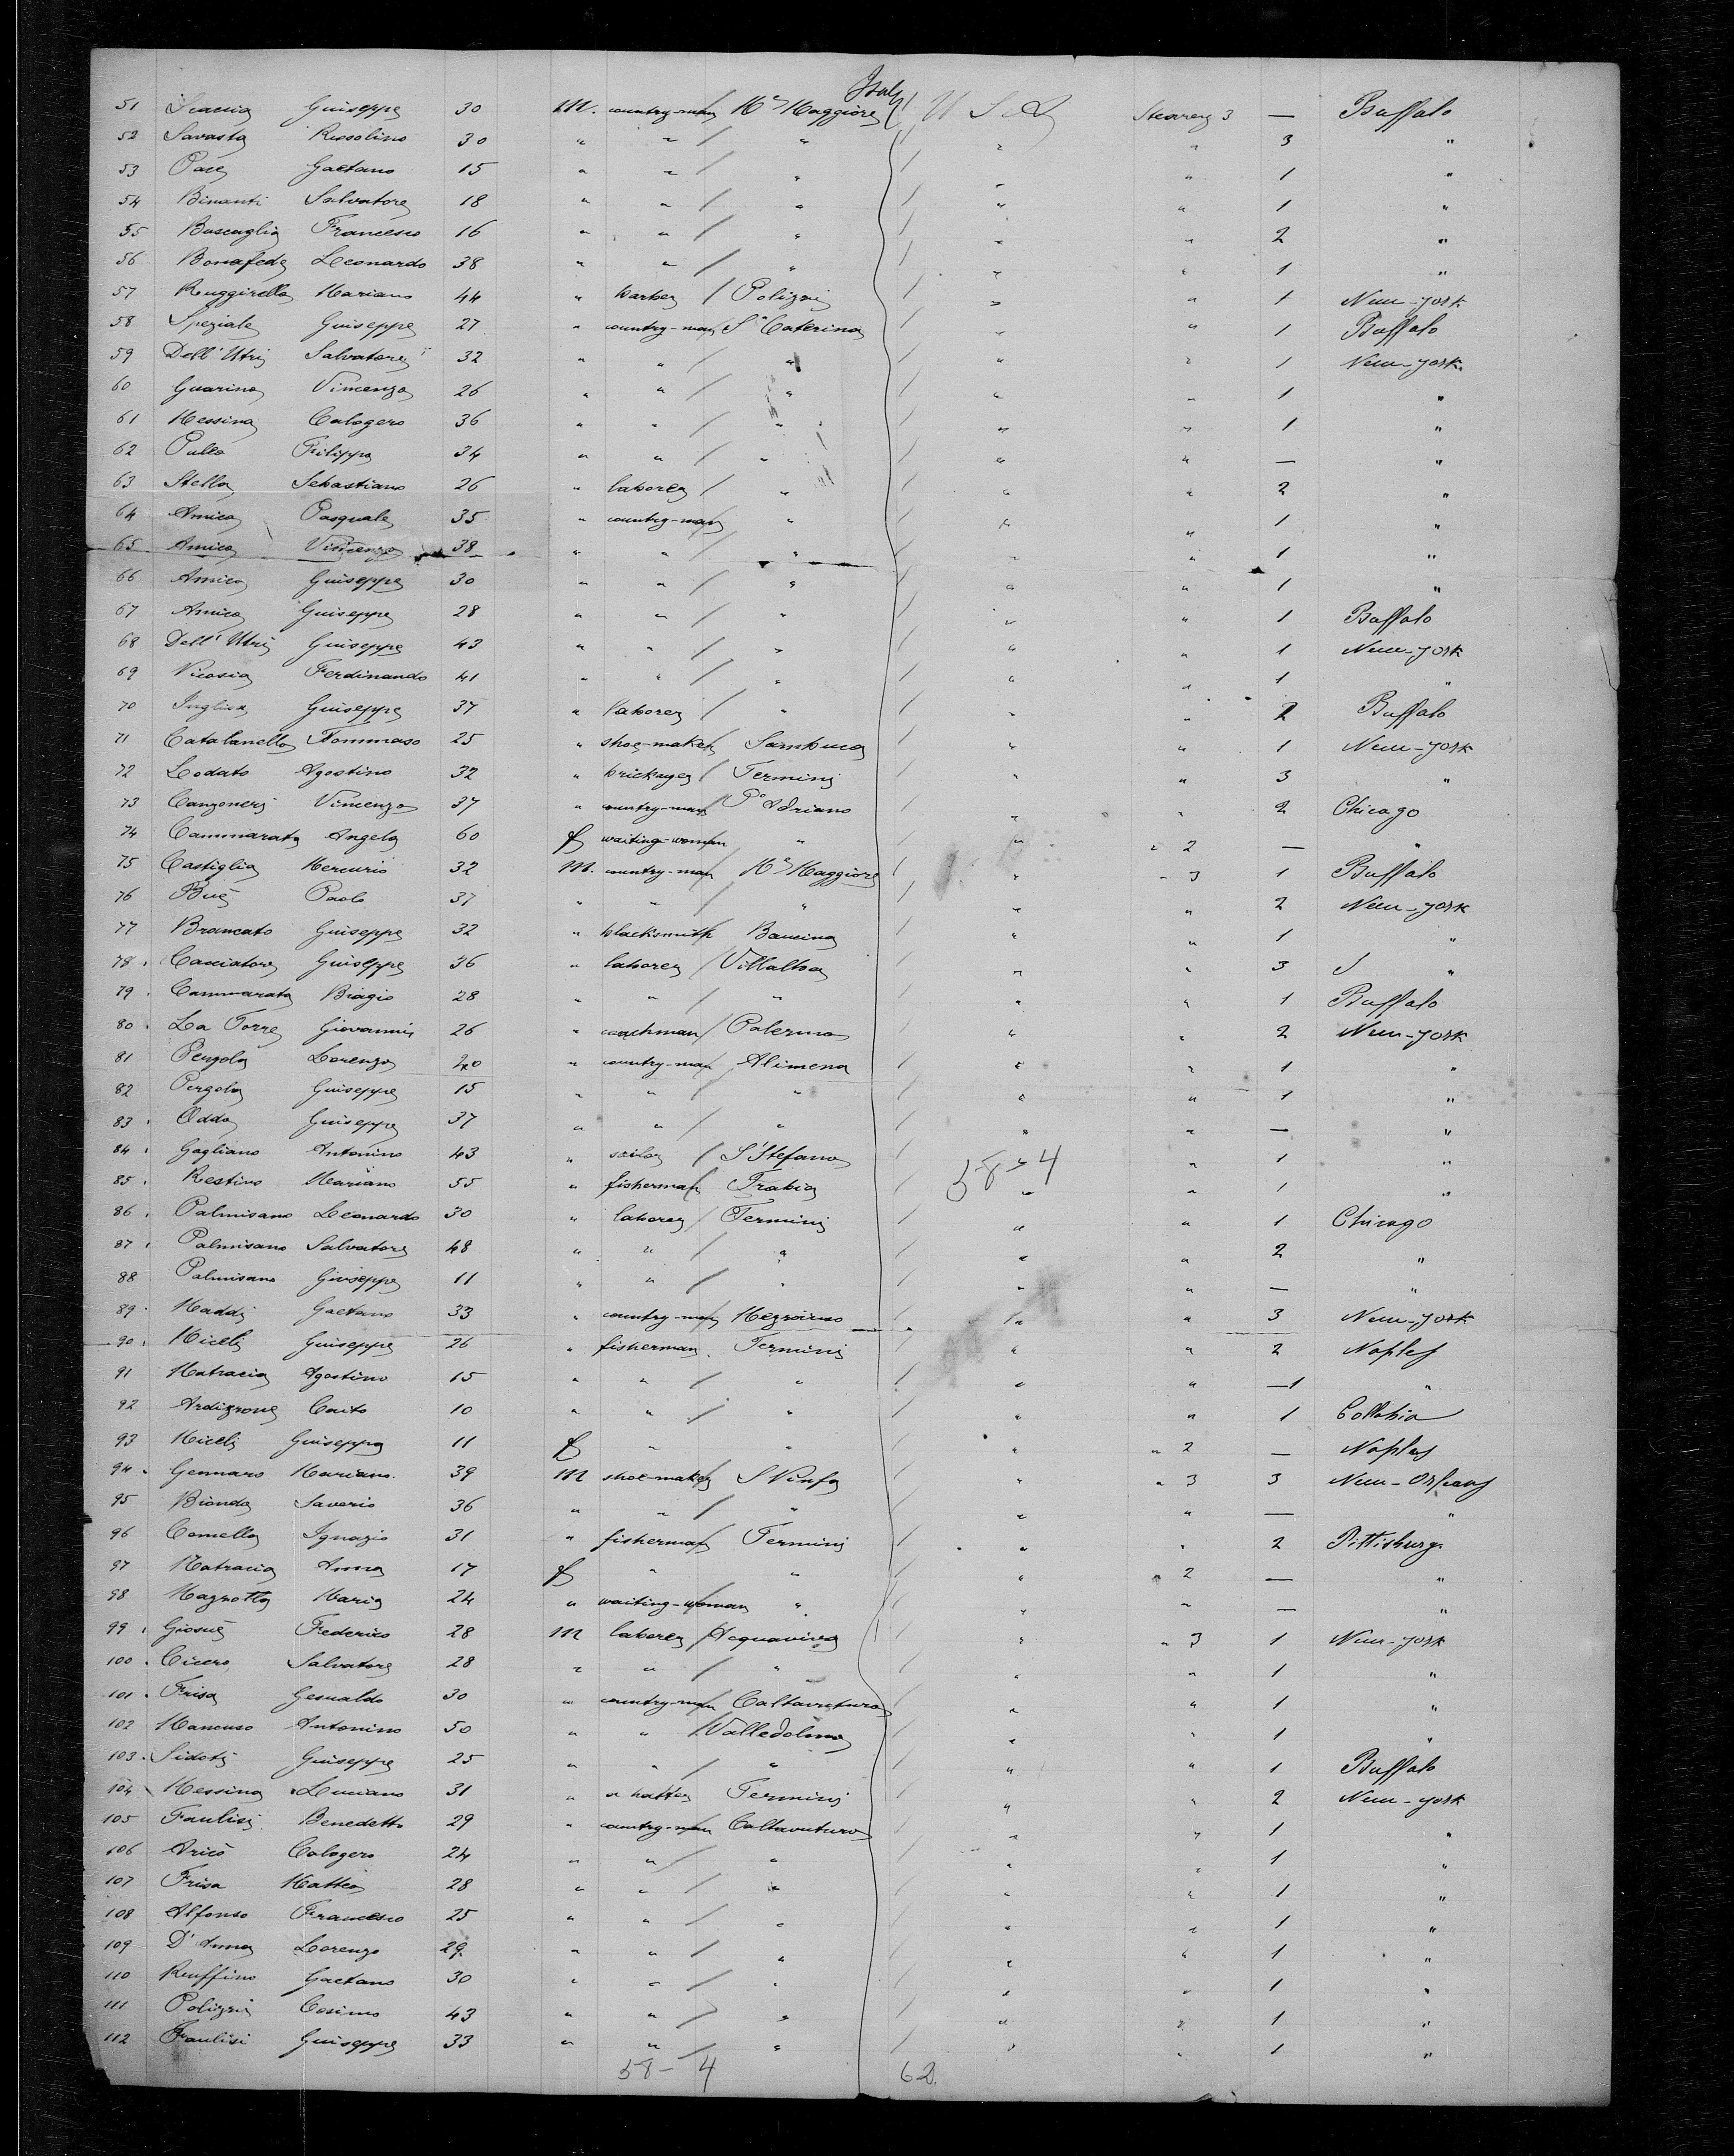 Italy
51 Scaccia Guiseppe 30 M. country-man M.e Maggiore U S A Steerage 3 — Buffalo
52 Savasta Rosolino 30 " " " " " 3 "
53 Pace Gaetano 15 " " " " " 1 "
54 Binanti Salvatore 18 " " " " " 1 "
55 Buscaglia Francesco 16 " " " " " 2 "
56 Bonafede Leonardo 38 " " " " " 1 "
57 Ruggirello Mariano 44 " barber Polizzi " " 1 New-york
58 Speziale Guiseppe 27 " country-man S.a Caterina " " 1 Buffalo
59 Dell'Utri Salvatore 32 " " " " " 1 New-york
60 Guarino Vincenzo 26 " " " " " 1 "
61 Messina Calogero 36 " " " " " 1 "
62 Puleo Filippo 34 " " " " " — "
63 Stella Sebastiano 26 " laborer " " " 2 "
64 Amico Pasquale 35 " country-man " " " 1 "
65 Amico Vincenzo 38 " " " " " 1 "
66 Amico Guiseppe 30 " " " " " 1 "
67 Amico Guiseppe 28 " " " " " 1 Buffalo
68 Dell'Utri Guiseppe 43 " " " " " 1 New-york
69 Nicosia Ferdinando 41 " " " " " 1 "
70 Inglisa Guiseppe 37 " laborer " " " 2 Buffalo
71 Catalanello Tommaso 25 " shoe-maker Sambuca " " 1 New-york
72 Lodato Agostino 32 " bricklayer Termini " " 3 "
73 Canzoneri Vincenzo 37 " country-man P.o Adriano " " 2 Chicago
74 Cammarata Angela 60 f waiting-woman " " " 2 — "
75 Castiglia Mercurio 32 M. country-man M.e Maggiore " " 3 1 Buffalo
76 Buè Paolo 37 " " " " " 2 New-york
77 Brancato Guiseppe 32 " blacksmith Baucina " " 1 "
78 Cacciatore Guiseppe 36 " laborer Villalba " " 3 "
79 Cammarata Biagio 28 " " " " " 1 Buffalo
80 La Torre Giovanni 26 " coachman Palermo " " 2 New-york
81 Pergola Lorenzo 40 " country-man Alimena " " 1 "
82 Pergola Guiseppe 15 " " " " " 1 "
83 Oddo Guiseppe 37 " " " " " — "
84 Gagliano Antonino 43 " sailor S'Stefano 58-4 " 1 "
85 Restivo Mariano 55 " fisherman Trabia " " 1 "
86 Palmisano Leonardo 30 " laborer Termini " " 1 Chicago
87 Palmisano Salvatore 48 " " " " " 2 "
88 Palmisano Giuseppe 11 " " " " " — "
89 Maddi Gaetano 33 " country-man Mezzoiuso " " 3 New-york
90 Miceli Guiseppe 26 " fisherman Termini " " 2 Naples
91 Matracia Agostino 15 " " " " " —1 "
92 Ardizzone Conto 10 " " " " " 1
93 Miceli Guiseppa 11 f " " " " 2 — Naples
94 Gennaro Mariano 39 M shoe-maker S Ninfa " " 3 3 New-Orleans
95 Biondo Saverio 36 " " " " " — "
96 Comella Ignazio 31 " fisherman Termini " " 2 Pittisburg
97 Matracia Anna 17 f " " " " 2 — "
98 Magnotta Maria 24 " waiting-woman " " " — "
99 Giosuè Federico 28 M laborer Acquaviva " " 3 1 New-york
100 Cicero Salvatore 28 " " " " " 1 "
101 Frisa Gesualdo 30 " country-man Caltavuturo " " 1 "
102 Mancuso Antonino 50 " " Valledolmo " " 1 "
103 Sidoti Guiseppe 25 " " " " " 1 Buffalo
104 Messina Luciano 31 " a hatter Termini " " 2 New-york
105 Faulisi Benedetto 29 " country-man Caltavuturo " " 1 "
106 Aricò Calogero 24 " " " " " 1 "
107 Frisa Matteo 28 " " " " " 1 "
108 Alfonso Francesco 25 " " " " " 1 "
109 D'Anna Lorenzo 29 " " " " " 1 "
110 Ruffino Gaetano 30 " " " " " 1 "
111 Polizzi Cosimo 43 " " " " " 1 "
112 Faulisi Guiseppe 33 " " " " " 1 "
58-4 62.